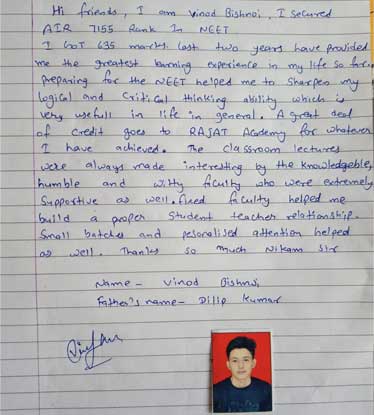 Hi friends, I am Vinod Bishnoi, I secured
AIR 7155 Rank In NEET
I GoT 635 marks. last two years have provided
me the greatest learning experience in my life so far.
preparing for the NEET helped me to Sharpen my
logical and Critical thinking ability which is
very usefull in life in general. A great deal
of Credit goes to RAJAT Academy for whatever
I have achieved. The classroom lectures
were always made interesting by the knowledgeble,
humble and witty faculty who were extremely
Supportive as well. fixed faculty helped me
build a proper Student teacher relationship.
Small batches and pesonalised attention helped
as well. Thanks so much Nikam Sir
Name - Vinod Bishnoi
Father's name - Dilip Kumar